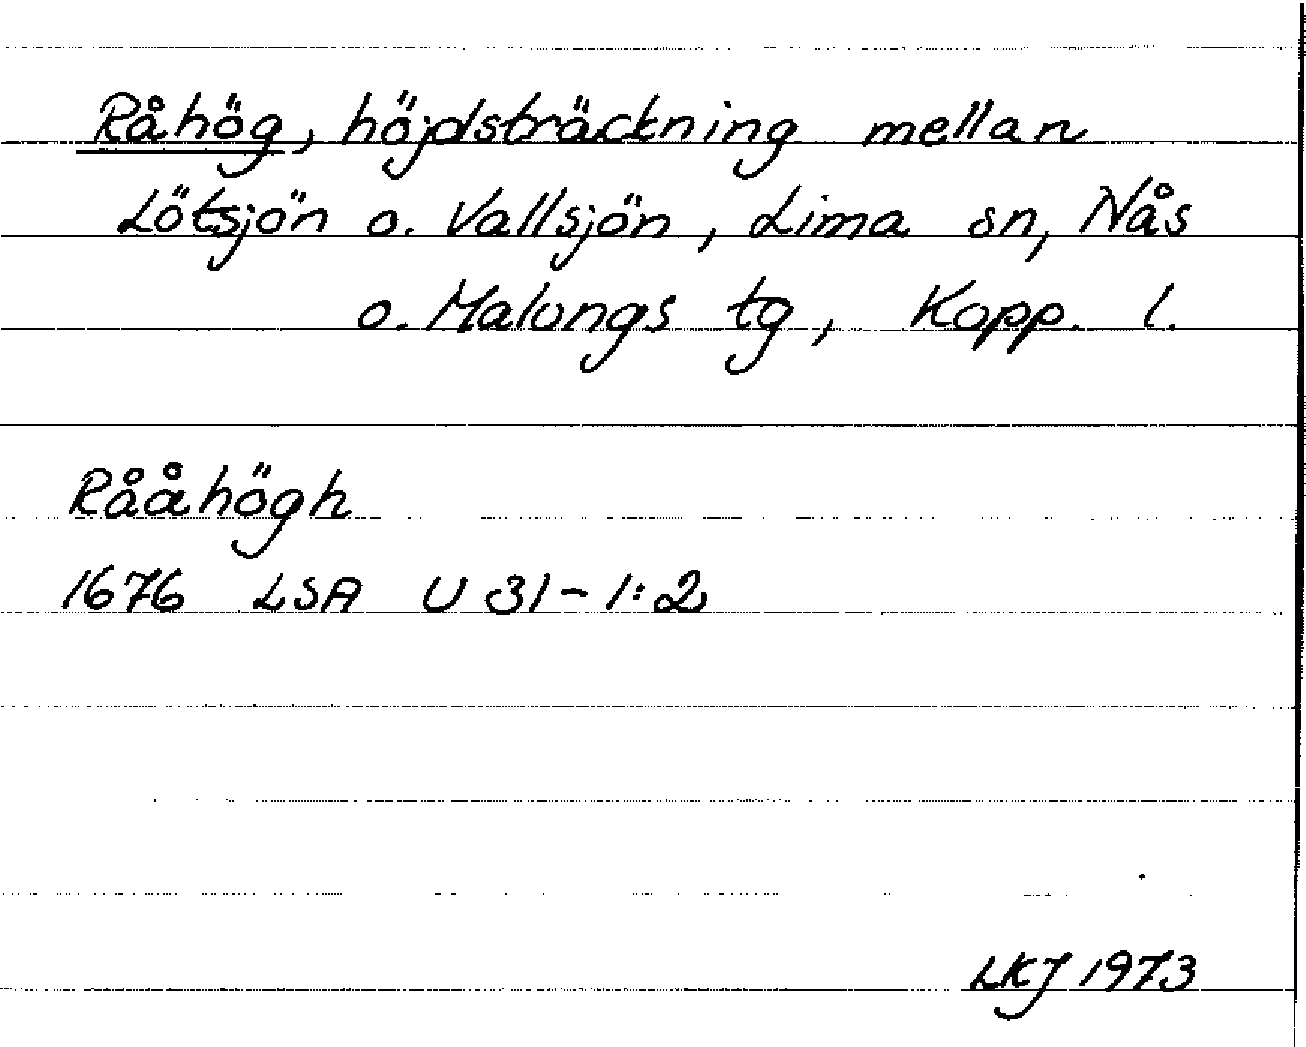 Råhög, höjdsträckning mellan
Lötsjön o. Vallsjön, Lima sn, Nås
o. Malungs tg, Kopp. l.
Rååhögh
1676 LSA U 31-1:2
LKJ 1973